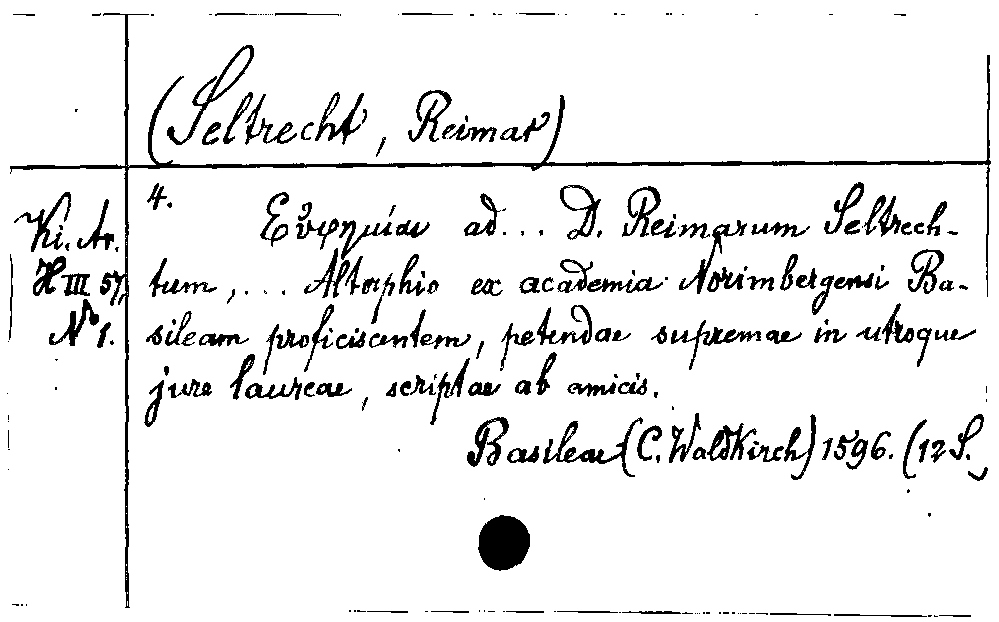 (Seltrecht, Reimar)
4.
Εὐφημίαι ad... D. Reimarum Seltrech-
tum, ... Altorphio ex academia Norimbergensi Ba-
sileam proficiscentem, petendae supremae in utroque
jure laureae, scriptae ab amicis.
Basileae (C. Waldkirch) 1596. (12 S.)
Ki. Ar.
H III 57,
No 1.